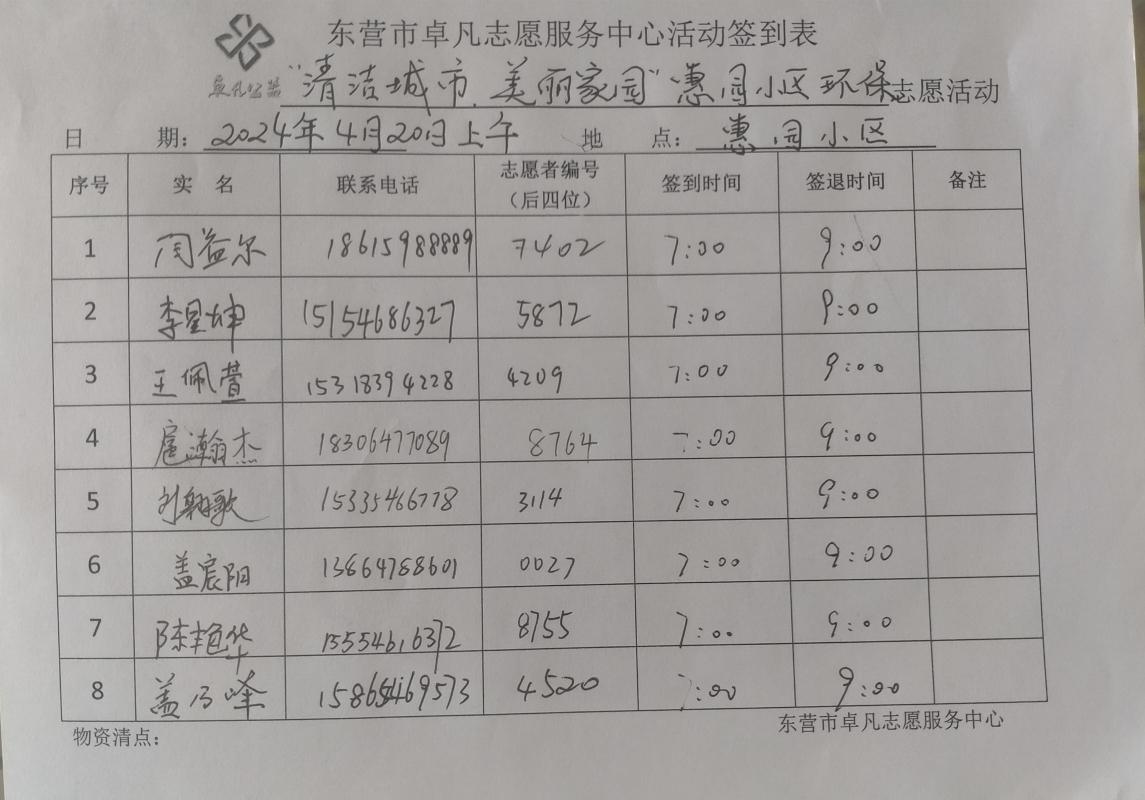 东营市卓凡志愿服务中心活动签到表
卓凡公益 "清洁城市、美丽家园"惠园小区环保志愿活动
日 期：2024年4月20日上午 地 点：惠园小区
序号 实 名 联系电话 志愿者编号（后四位） 签到时间 签退时间 备注
1 闫益尔 18615988889 7402 7:00 9:00
2 李星坤 15154686327 5872 7:00 9:00
3 王佩萱 15318394228 4209 7:00 9:00
4 扈瀚杰 18306477089 8764 7:00 9:00
5 刘翱歌 15335466778 3114 7:00 9:00
6 盖宸阳 13864788601 0027 7:00 9:00
7 陈艳华 15554616372 8755 7:00 9:00
8 盖乃峰 4520 7:00 9:00
物资清点： 东营市卓凡志愿服务中心